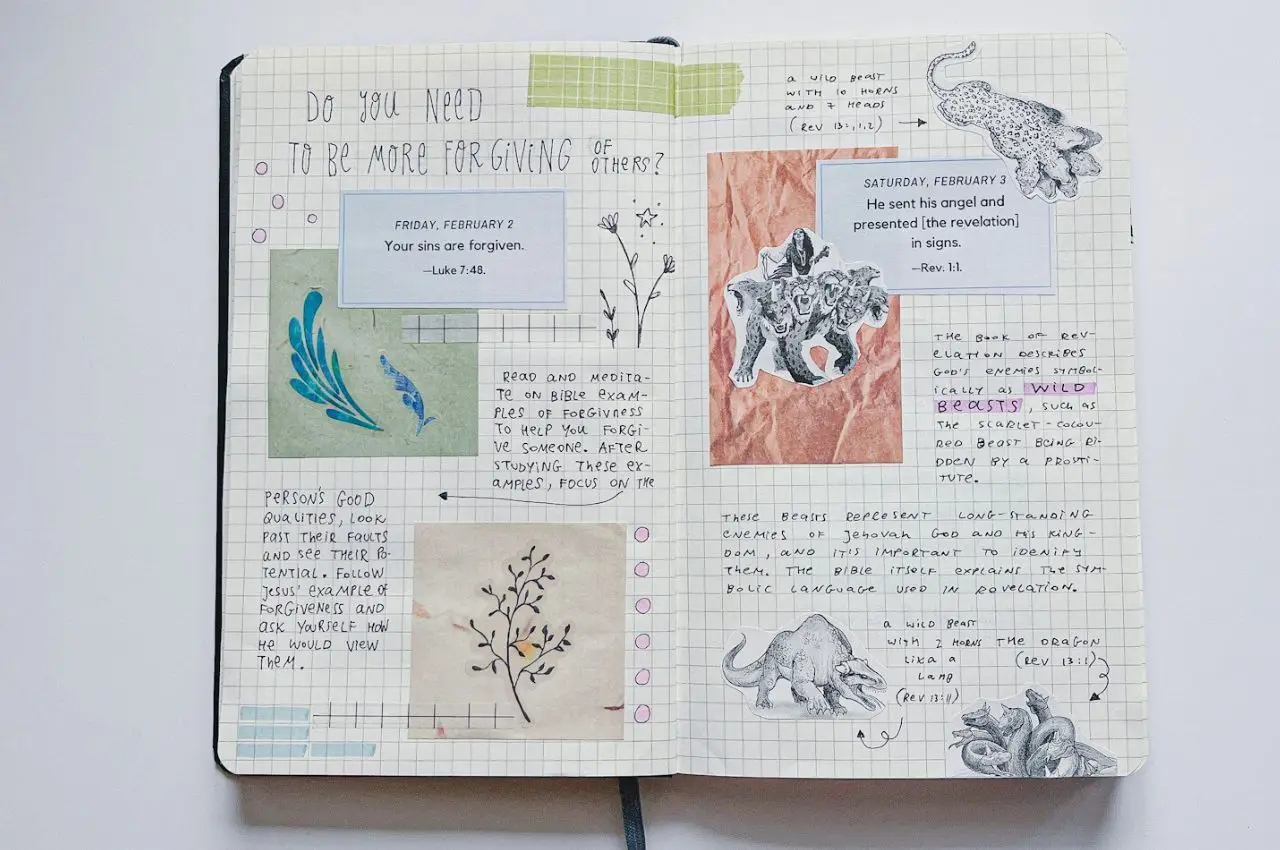 DO YOU NEED
TO BE MORE FORGIVING OF OTHERS?
FRIDAY, FEBRUARY 2
Your sins are forgiven.
—Luke 7:48.
READ AND MEDITA-
TE ON BIBLE EXAM-
PLES OF FORGIVNESS
TO HELP YOU FORGI-
VE SOMEONE. AFTER
STUDYING THESE EX-
AMPLES, FOCUS ON THE
PERSON'S GOOD
QUALITIES, LOOK
PAST THEIR FAULTS
AND SEE THEIR PO-
TENTIAL. FOLLOW
JESUS' EXAMPLE OF
FORGIVENESS AND
ASK YOURSELF HOW
HE WOULD VIEW
THEM.
a WILD BEAST
WITH 10 HORNS
AND 7 HEADS
(REV 13:,1,2)
SATURDAY, FEBRUARY 3
He sent his angel and
presented [the revelation]
in signs.
—Rev. 1:1.
THE BOOK OF REV-
ELATION DESCRIBES
GOD'S ENEMIES SYMBOL-
ICALLY AS WILD
BEASTS, SUCH AS
THE SCARLET-COLOU-
RED BEAST BEING RI-
DDEN BY A PROSTI-
TUTE.
THESE BEASTS REPRESENT LONG-STANDING
ENEMIES OF JEHOVAH GOD AND HIS KING-
DOM, AND IT'S IMPORTANT TO IDENIFY
THEM. THE BIBLE ITSELF EXPLAINS THE SYM-
BOLIC LANGUAGE USED IN ROVELATION.
a WILD BEAST
WITH 2 HORNS
LIKA A
LAMB
(REV 13:11)
THE DRAGON
(REV 13:1)